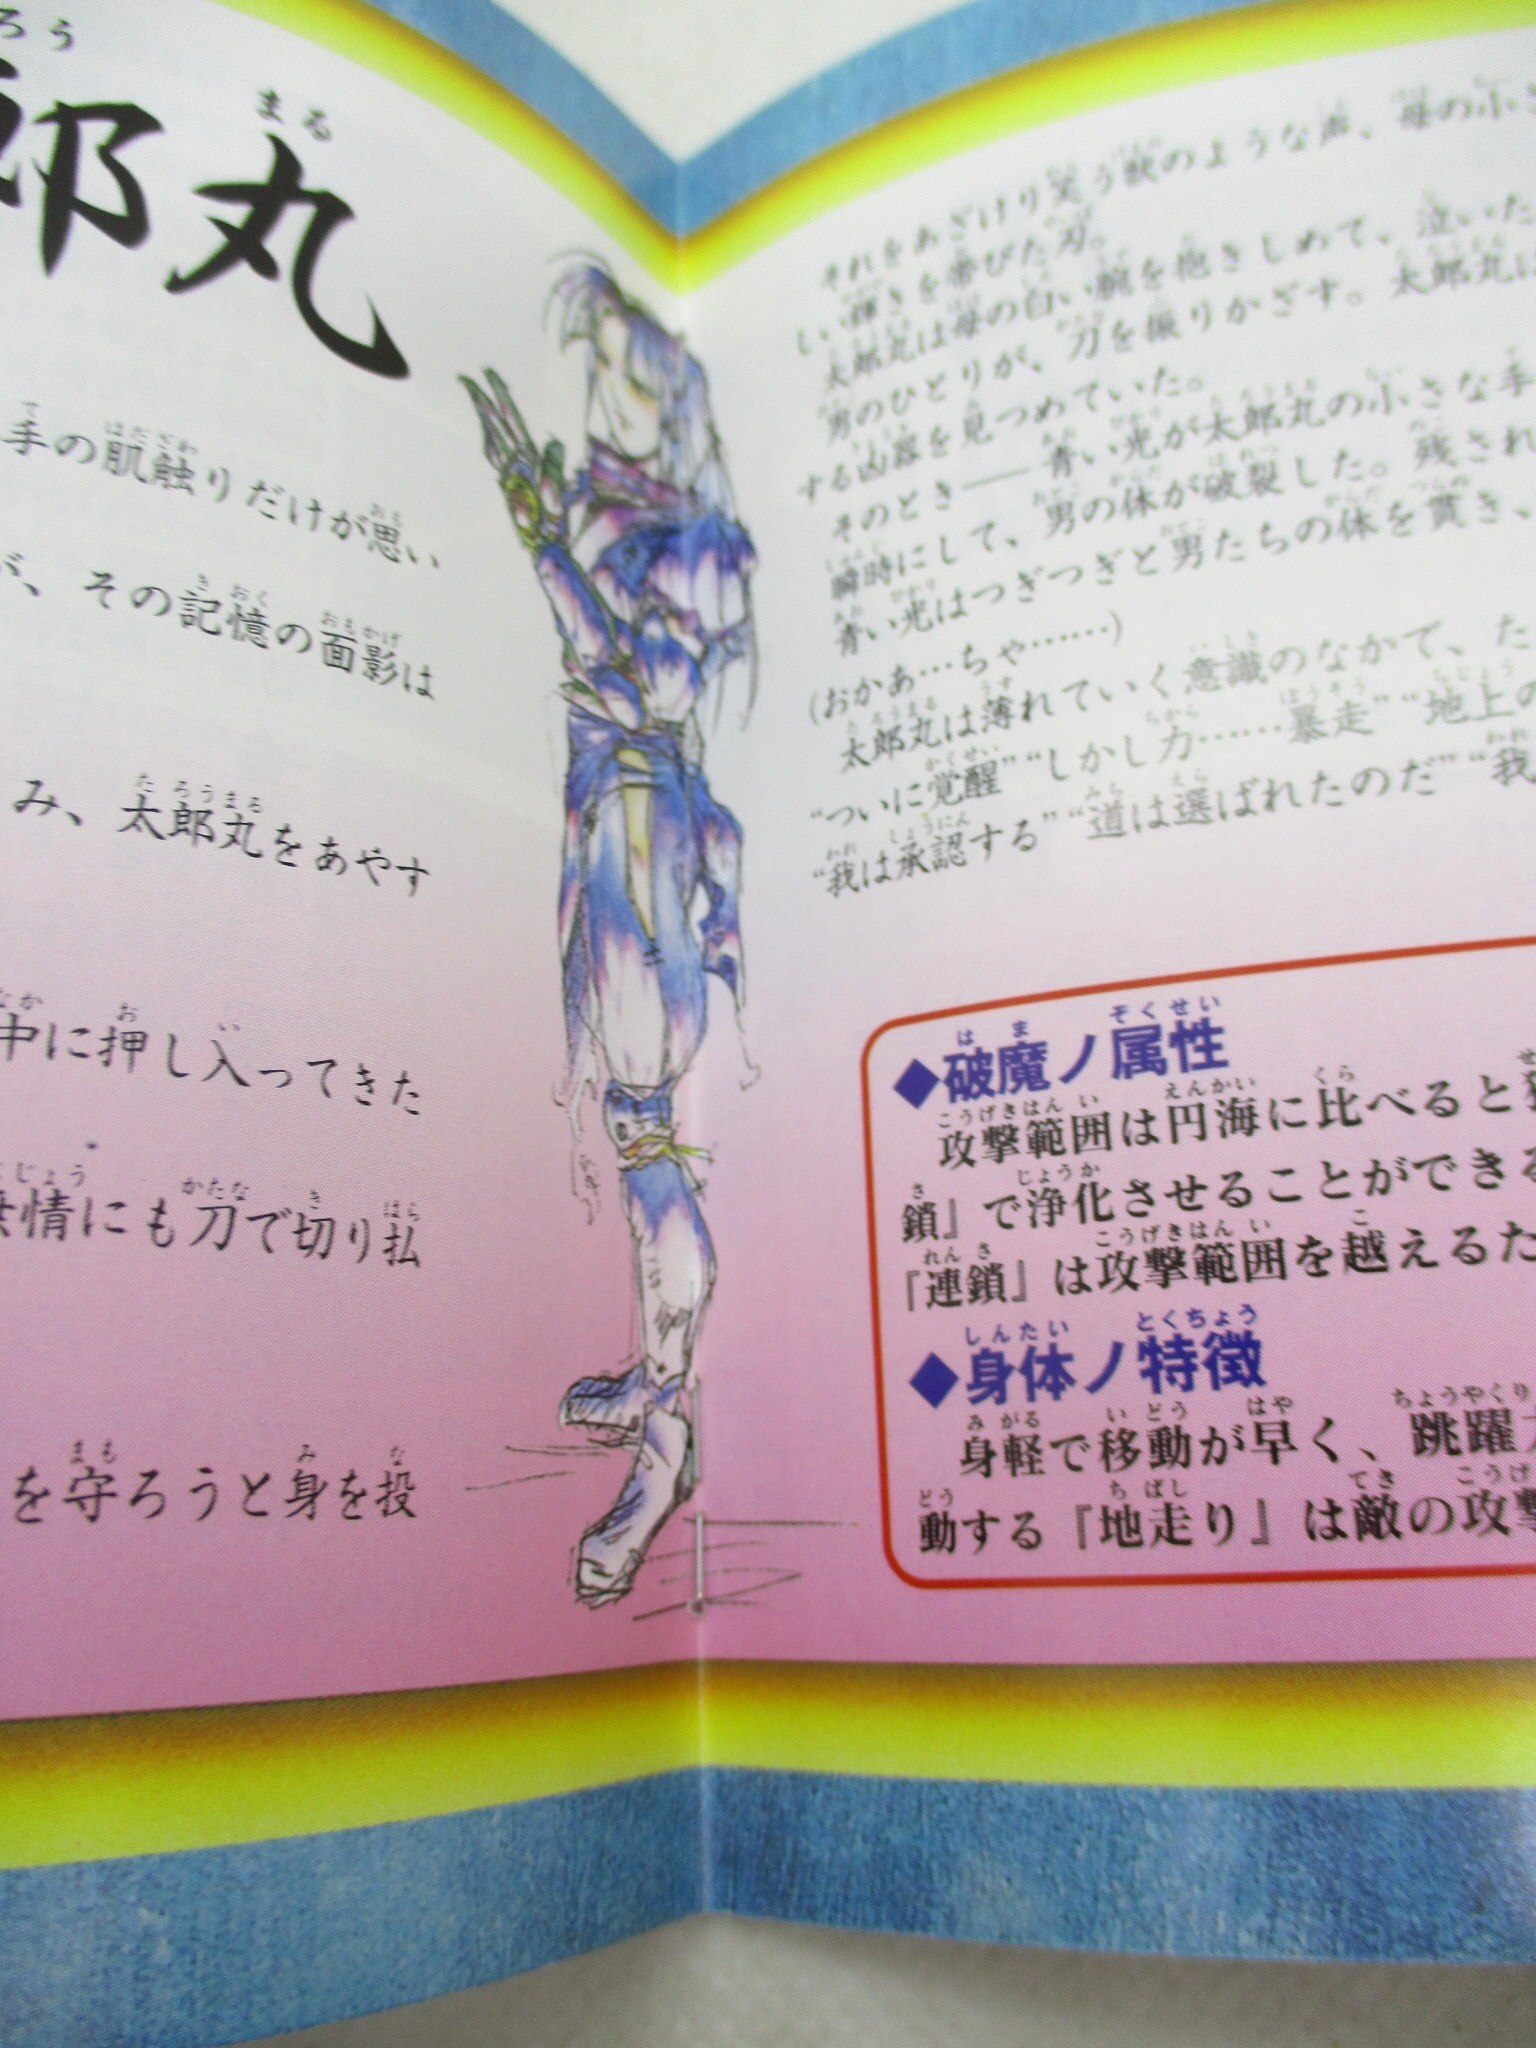 郎丸
手の肌触りだけが思い
が、その記憶の面影は
み、太郎丸をあやす
中に押し入ってきた
情にも刀で切り払
を守ろうと身を投
それをあざけり笑う獣のような声、母の
しい輝きを帯びた刃。
太郎丸は母の白い腕を抱きしめて、泣いた
男のひとりが、刀を振りかざす。太郎丸は
する凶器を見つめていた。
そのとき――青い光が太郎丸の小さな手
瞬時にして、男の体が破裂した。残され
青い光はつぎつぎと男たちの体を貫き、
(おかぁ…ちゃ……)
太郎丸は薄れていく意識のなかで、た
“ついに覚醒”“しかし力……暴走”“地上の
“我は承認する”“道は選ばれたのだ”“我
◆破魔ノ属性
攻撃範囲は円海に比べると
鎖』で浄化させることができる
『連鎖』は攻撃範囲を越えるた
◆身体ノ特徴
身軽で移動が早く、跳躍
動する『地走り』は敵の攻撃